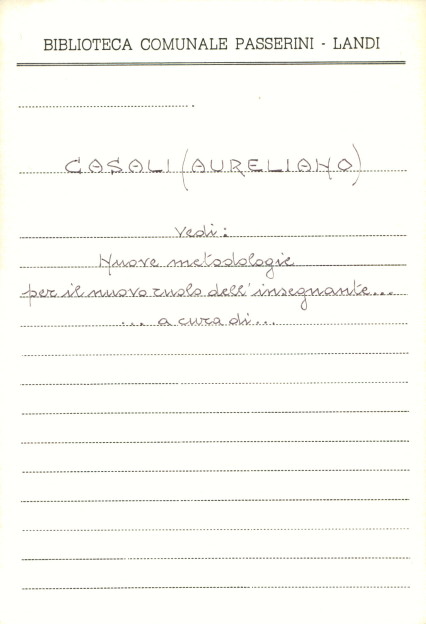 BIBLIOTECA COMUNALE PASSERINI - LANDI
CASALI (AURELIANO)
Vedi:
Nuove metodologie
per il nuovo ruolo dell'insegnante...
... a cura di...